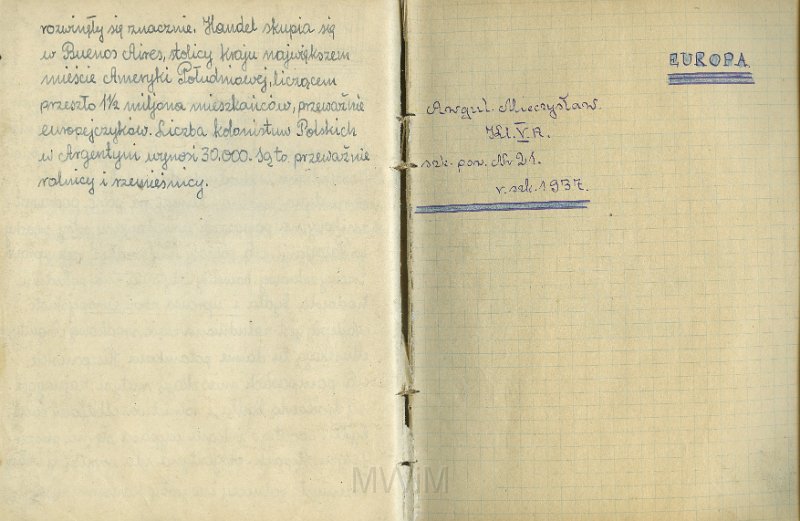 rozwinęły się znacznie. Handel skupia się
w Buenos Aires, stolicy kraju największem
mieście Ameryki Południowej, liczącem
przeszło 1½ miljona mieszkańców, przeważnie
europejczyków. Liczba kolonistuw Polskich
w Argentyni wynosi 30.000. Są to przeważnie
rolnicy i rzemieśnicy.
EUROPA
Awguł. Mieczysław.
Kl. V. R.
szk. pow. Nr 21.
r. szk. 1937.
MWiM